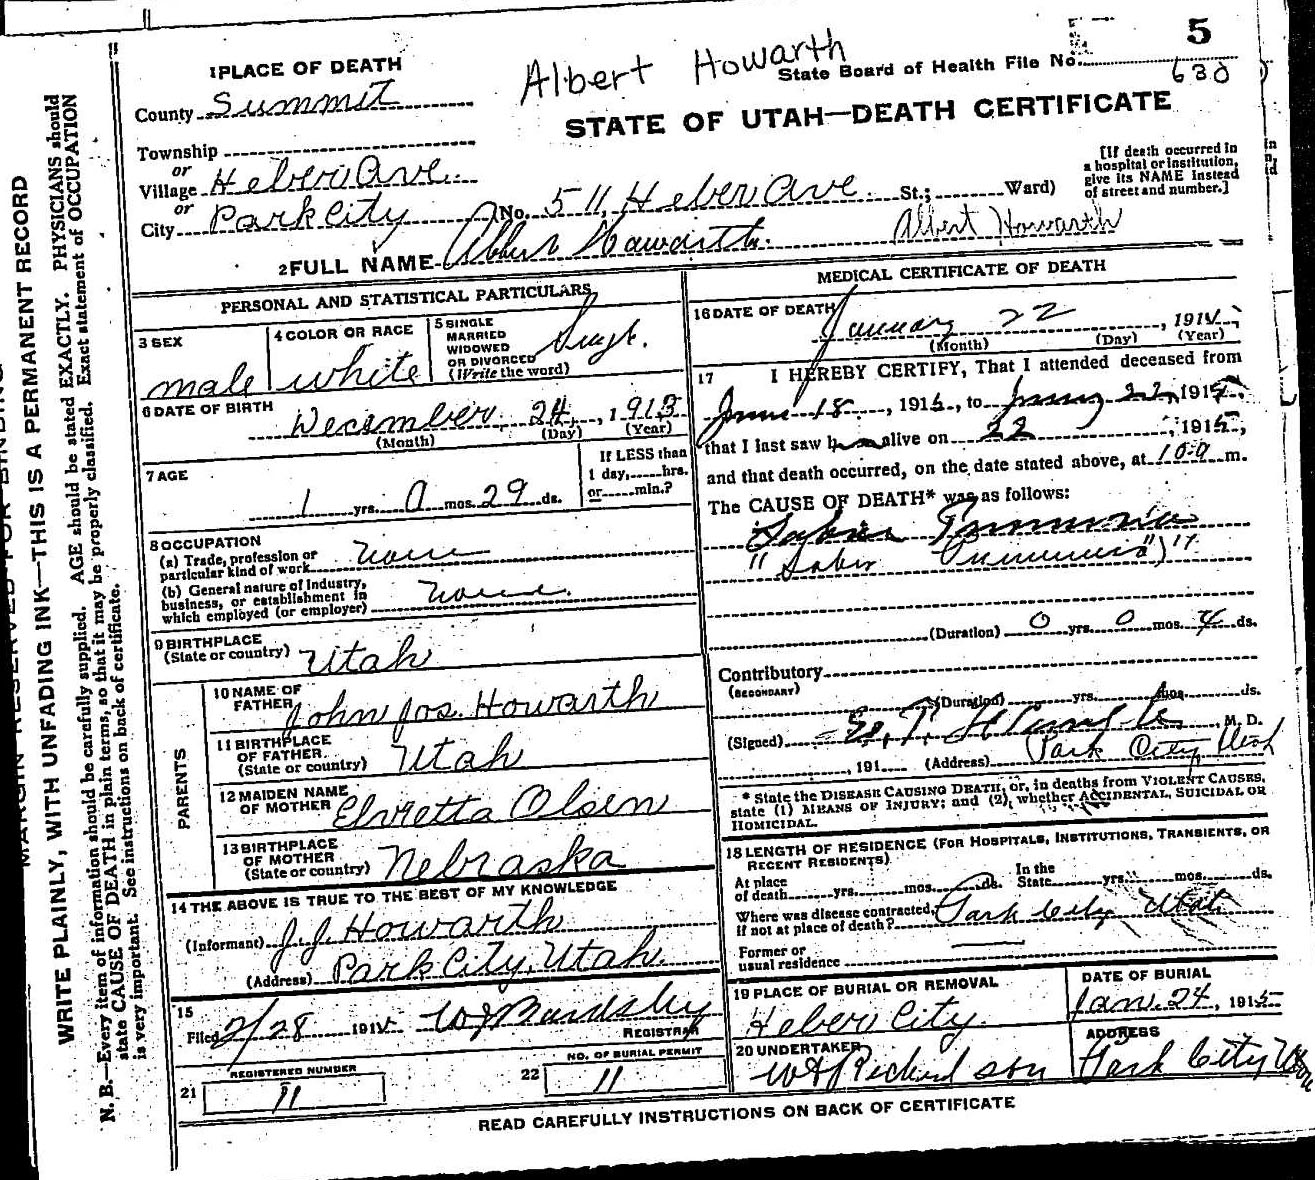 5
Albert Howarth
State Board of Health File No. 630
STATE OF UTAH—DEATH CERTIFICATE
1 PLACE OF DEATH
County Summit
Township
or
Village Heber Ave.
or
City Park City (No. 511, Heber Ave. St.; Ward)
[If death occurred in
a hospital or institution,
give its NAME instead
of street and number.]
2 FULL NAME Albert Howarth. Albert Howarth
PERSONAL AND STATISTICAL PARTICULARS
3 SEX
male
4 COLOR OR RACE
white
5 SINGLE
MARRIED
WIDOWED
OR DIVORCED
(Write the word)
Singl.
6 DATE OF BIRTH
December, 24, 1913
(Month) (Day) (Year)
7 AGE
1 yrs. 0 mos. 29 ds.
If LESS than
1 day, hrs.
or min.?
8 OCCUPATION
(a) Trade, profession or
particular kind of work none
(b) General nature of Industry,
business, or establishment in
which employed (or employer) none.
9 BIRTHPLACE
(State or country) Utah
PARENTS
10 NAME OF
FATHER John Jos. Howarth
11 BIRTHPLACE
OF FATHER.
(State or country) Utah
12 MAIDEN NAME
OF MOTHER Elvretta Olsen
13 BIRTHPLACE
OF MOTHER
(State or country) Nebraska
14 THE ABOVE IS TRUE TO THE BEST OF MY KNOWLEDGE
(Informant) J.J. Howarth
(Address) Park City, Utah.
15
Filed 2/28 191
REGISTRAR
REGISTERED NUMBER
21 11
NO. OF BURIAL PERMIT
22 11
MEDICAL CERTIFICATE OF DEATH
16 DATE OF DEATH
January 22, 191
(Month) (Day) (Year)
17 I HEREBY CERTIFY, That I attended deceased from
18, 1915, to 22, 1915,
that I last saw h alive on 22, 1915,
and that death occurred, on the date stated above, at m.
The CAUSE OF DEATH* was as follows:
Pneumonia
(Duration) 0 yrs. 0 mos. 4 ds.
Contributory
(SECONDARY)
(Duration) yrs. mos. ds.
(Signed) E. P. M. D.
, 191 (Address) Park City, Utah
* State the DISEASE CAUSING DEATH, or, in deaths from VIOLENT CAUSES,
state (1) MEANS OF INJURY; and (2), whether ACCIDENTAL, SUICIDAL OR
HOMICIDAL.
18 LENGTH OF RESIDENCE (FOR HOSPITALS, INSTITUTIONS, TRANSIENTS, OR
RECENT RESIDENTS)
At place
of death yrs. mos. ds.
In the
State yrs. mos. ds.
Where was disease contracted,
if not at place of death? Park City Utah
Former or
usual residence
19 PLACE OF BURIAL OR REMOVAL
Heber City.
DATE OF BURIAL
Jan. 24, 1915
20 UNDERTAKER
ADDRESS
Park City
READ CAREFULLY INSTRUCTIONS ON BACK OF CERTIFICATE
WRITE PLAINLY, WITH UNFADING INK—THIS IS A PERMANENT RECORD
N. B.—Every item of information should be carefully supplied. AGE should be stated EXACTLY. PHYSICIANS should
state CAUSE OF DEATH in plain terms, so that it may be properly classified. Exact statement of OCCUPATION
is very important. See instructions on back of certificate.